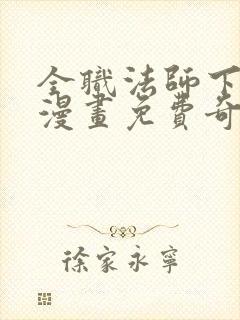 全職法師下
漫畫免費奇
徐家永寧